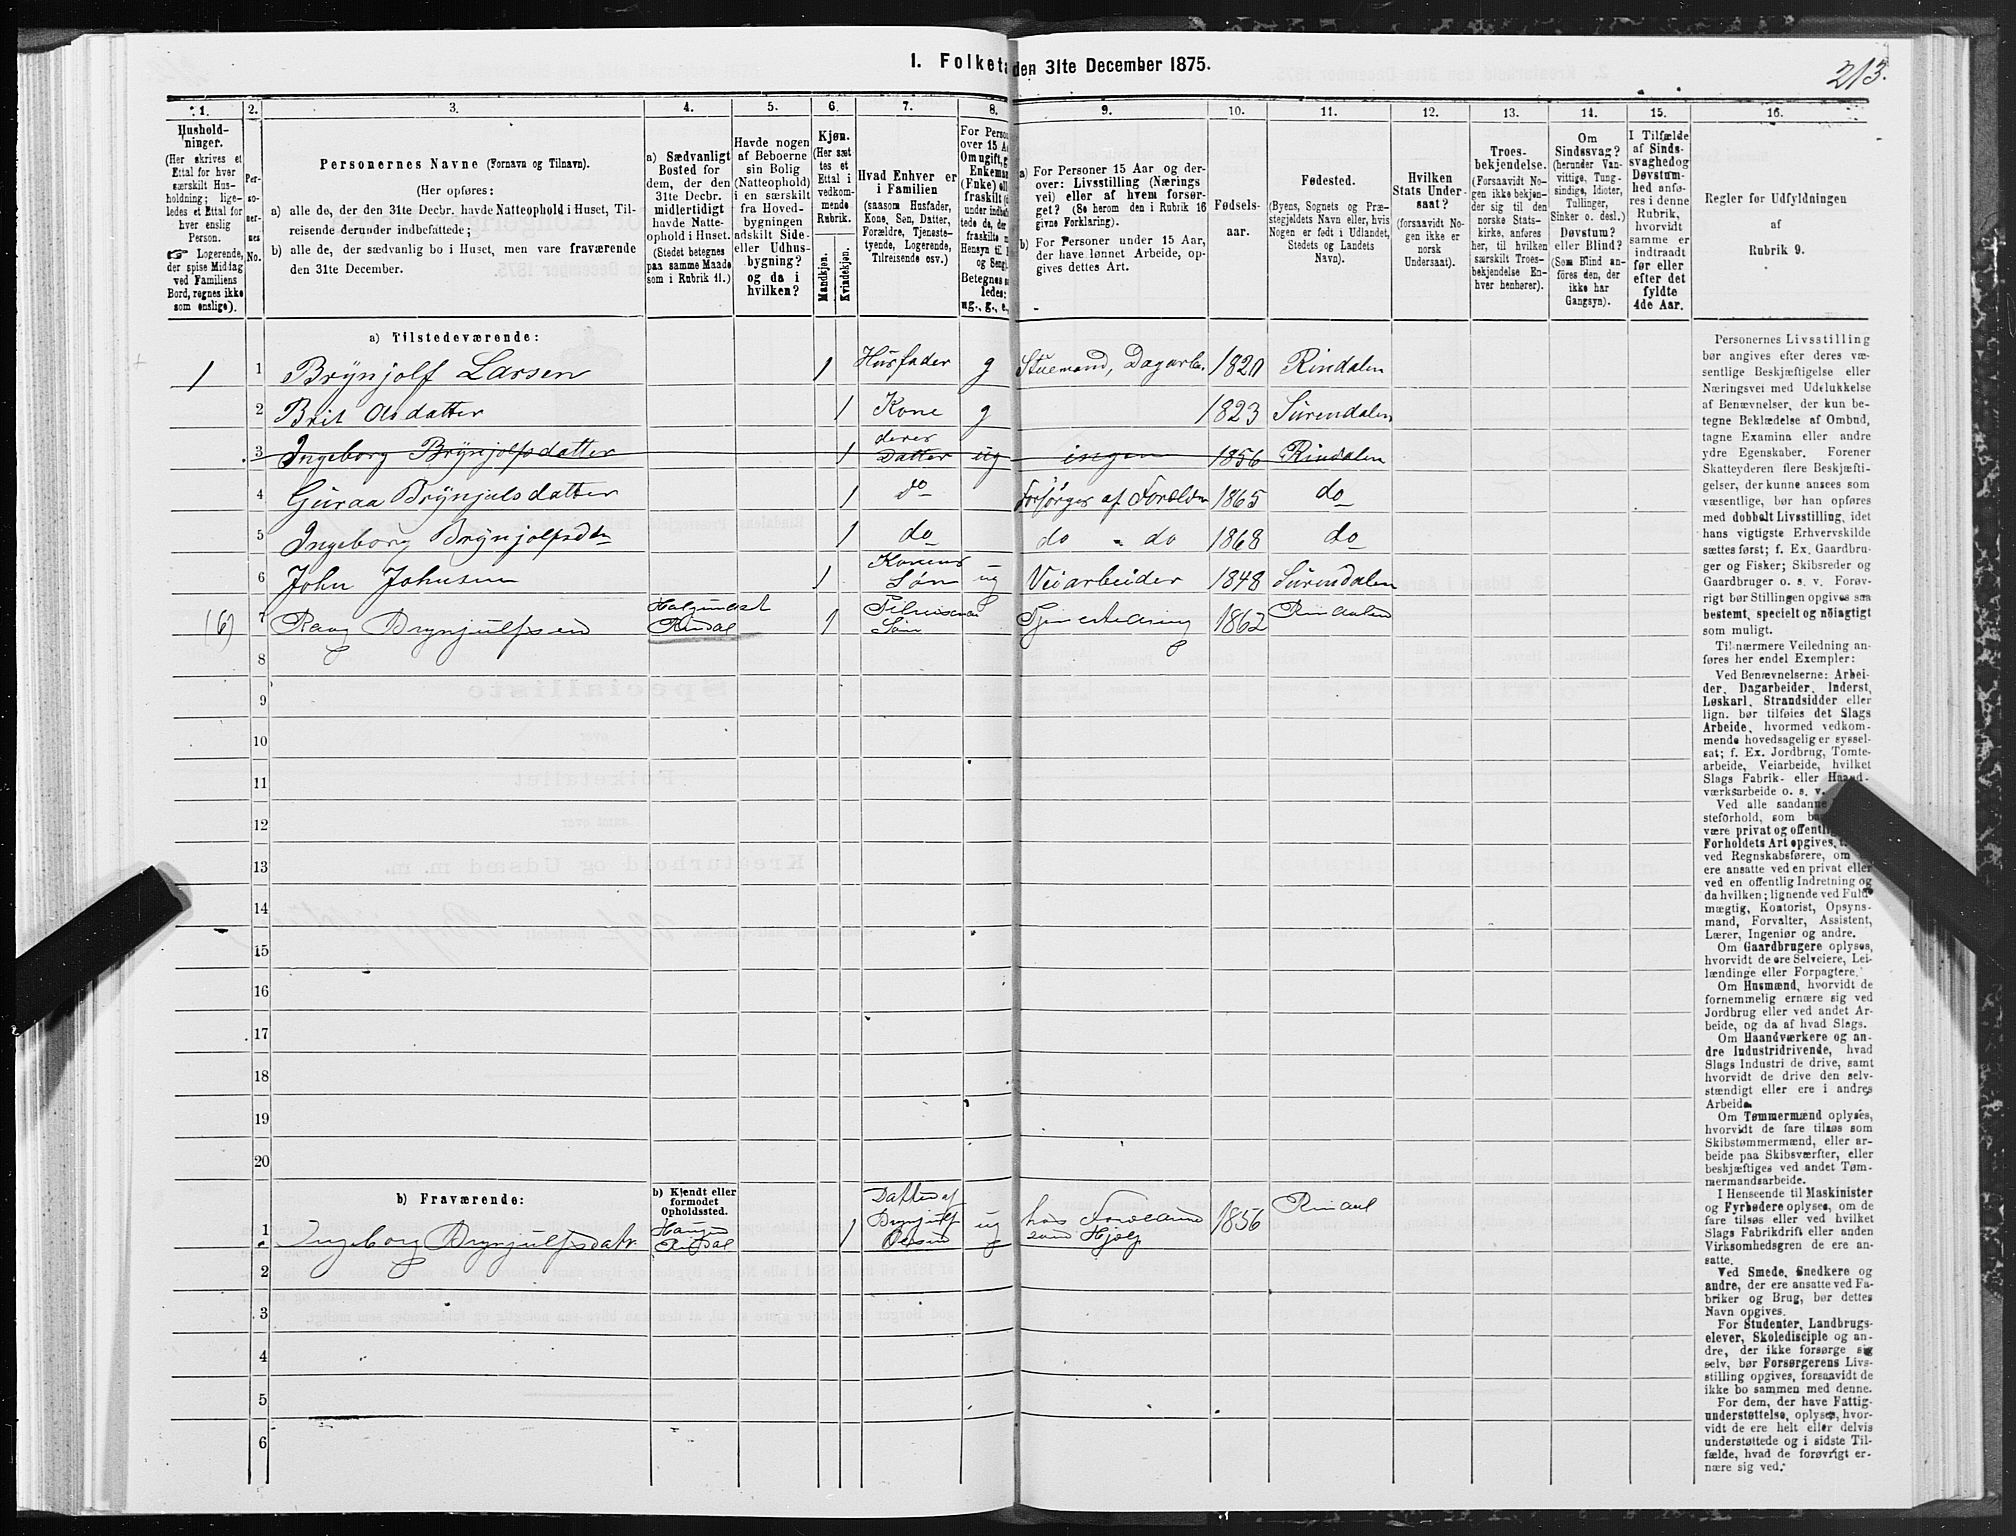 1. Folketa den 31te December 1875.
213.
1. 2. 3. 4. 5. 6. 7. 8. 9. 10. 11. 12. 13. 14. 15. 16.
Hushold-
ninger.
(Her skrives et
Ettal for hver
særskilt Hus-
holdning; lige-
ledes et Ettal for
hver enslig
Person.
☛ Logerende,
der spise Middag
ved Familiens
Bord, regnes ikke
som enslige).
Per-
so-
ner-
nes
No.
Personernes Navne (Fornavn og Tilnavn).
(Her opføres:
a) alle de, der den 31te Decbr. havde Natteophold i Huset, Til-
reisende derunder indbefattede;
b) alle de, der sædvanlig bo i Huset, men vare fraværende
den 31te December.
a) Sædvanligt
Bosted for
dem, der den
31te Decbr.
midlertidigt
havde Natte-
ophold i Huset.
(Stedet betegnes
paa samme Maade
som i Rubrik 11.)
Havde nogen
af Beboerne
sin Bolig
(Natteophold)
i en særskilt
fra Hoved-
bygningen
adskilt Side-
eller Udhus-
bygning?
og da i
hvilken?
Kjøn.
(Her sæt
tes et
Ettal i
vedkom-
mende
Rubrik.
Mandkjøn.
Kvindekjøn.
Hvad Enhver er
i Familien
(saasom Husfader,
Kone, Søn, Datter,
Forældre, Tjeneste-
tyende, Logerende,
Tilreisende osv.)
For Person
over 15 Aa
Om ugift, g
Enkeman
(Enke) ell
fraskilt (
under indbef
tede de, der
fraskilte
Hensyn til
og Seng
Betegnes s
ledes:
ug., g., e.,
a) For Personer 15 Aar og der-
over: Livsstilling (Nærings
vei) eller af hvem forsør-
get? (Se herom den i Rubrik 16
givne Forklaring).
b) For Personer under 15 Aar,
der have lønnet Arbeide, op-
gives dettes Art.
Fødsels-
aar.
Fødested.
(Byens, Sognets og Præ-
stegjeldets Navn eller, hvis
Nogen er født i Udlandet,
Stedets og Landets
Navn).
Hvilken
Stats Under-
saat?
(forsaavidt No-
gen ikke er
norsk
Undersaat).
Troes-
bekjendelse.
(Forsaavidt No-
gen ikke bekjen-
der sig til den
norske Stats-
kirke, anføres
her, til hvilken
særskilt Troes-
bekjendelse En-
hver henhører).
Om
Sindssvag?
(herunder Van-
vittige, Tung-
sindige, Idioter,
Tullinger,
Sinker o. desl.)
Døvstum?
eller Blind?
(Som Blind an-
føres den, der
ikke har
Gangsyn).
I Tilfælde
af Sinds-
svaghed og
Døvstum-
hed anfø-
res i denne
Rubrik,
hvorvidt
samme er
indtraadt
før eller
efter det
fyldte
4de Aar.
Regler før Udfyldningen
af
Rubrik 9.
a) Tilstedeværende:
1 1 Brynjolf Larsen 1 Husfader g Stuemand, Dagarb. 1820 Rindalen
2 Brit Osdatter 1 Kone g 1823 Surendalen
3 Ingeborg Brynjolfsdatter 1 deres Datter ug ingen 1856 Rindalen
4 Guraa Brynjulsdatter 1 do Forsørges af Forældre 1865 do
5 Ingeborg Brynjolfsdtr 1 do do do 1868 do
6 John Johnsen 1 Konens Søn ug Veiarbeider 1848 Surendalen
(6) 7 Brynjulfsen Rindal 1 Søn 1862 Rindalen
8
9
10
11
12
13
14
15
16
17
18
19
20
b) Fraværende:
b) Kjendt eller
formodet
Opholdssted.
1 Ingeborg Brynjulfsdatr. Haugen Rindal 1 Datter af Brynjulf ug hos Forældrene Hjælp 1856 Rindal
2
3
4
5
6
Personernes Livsstilling
bør angives efter deres væ-
sentlige Beskjæftigelse eller
Næringsvei med Udelukkelse
af Benævnelser, der kun be-
tegne Beklædelse af Ombud,
tagne Examina eller andre
ydre Egenskaber. Forener
Skatteyderen flere Beskjæfti-
gelser, der kunne ansees som
væsentlige, bør han opføres
med dobbelt Livsstilling, idet
hans vigtigste Erhvervskilde
sættes først; f. Ex. Gaardbru-
ger og Fisker; Skibsreder og
Gaardbruger o. s. v. Forøv-
rigt bør Stillingen opgives saa
bestemt, specielt og nøiagtigt
som muligt.
Til nærmere Veiledning an-
føres her endel Exempler:
Ved Benævnelserne: Arbei-
der, Dagarbeider, Inderst,
Løskarl, Strandsidder eller
lign. bør tilføies det Slags
Arbeide, hvormed vedkom-
mende hovedsagelig er syssel-
sat; f. Ex. Jordbrug, Tomte-
arbeide, Veiarbeide, hvilket
Slags Fabrik- eller Haand-
værksarbeide o. s. v.
Ved alle saadanne
steforhold, som
være privat og offentlig
Forholdets Art opgives,
ved Regnskabsførere, om
ere ansatte ved en privat eller
ved en offentlig Indretning og
da hvilken; lignende ved Fuld
mægtig, Kontorist, Opsyns-
mand, Forvalter, Assistent,
Lærer, Ingeniør og andre.
Om Gaardbrugere oplyses,
hvorvidt de ere Selveiere, Lei-
lændinge eller Forpagtere.
Om Husmænd, hvorvidt de
fornemmelig ernære sig ved
Jordbrug eller ved andet Ar-
beide, og da af hvad Slags.
Om Haandværkere og an-
dre Industridrivende, hvad
Slags Industri de drive, samt
hvorvidt de drive den selv-
stændigt eller ere i andres
Arbeide.
Om Tømmermænd oplyses,
hvorvidt de fare tilsøs som
Skibstømmermænd, eller ar-
beide paa Skibsværfter, eller
beskjæftiges ved andet Tøm-
mermandsarbeide.
I Henseende til Maskinister
og Fyrbødere oplyses, om de
fare tilsøs eller ved hvilket
Slags Fabrikdrift eller anden
Virksomhedsgren de ere an-
satte.
Ved Smede, Snedkere og
andre, der ere ansatte ved Fa-
briker og Brug, bør dettes
Navn opgives.
For Studenter, Landbrugs-
elever, Skoledisciple og an-
dre, der ikke forsørge sig
selv, bør Forsørgerens Livs-
stilling opgives, forsaavidt de
ikke bo sammen med denne.
For dem, der have Fattig-
understøttelse, oplyses, hvor-
vidt de ere helt eller delvis
understøttede og i sidste Til-
fælde, hvad de forøvrigt er-
nære sig ved.